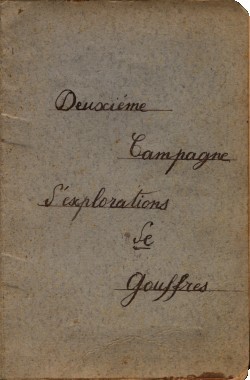 Deuxième
Campagne
d'explorations
de
Gouffres